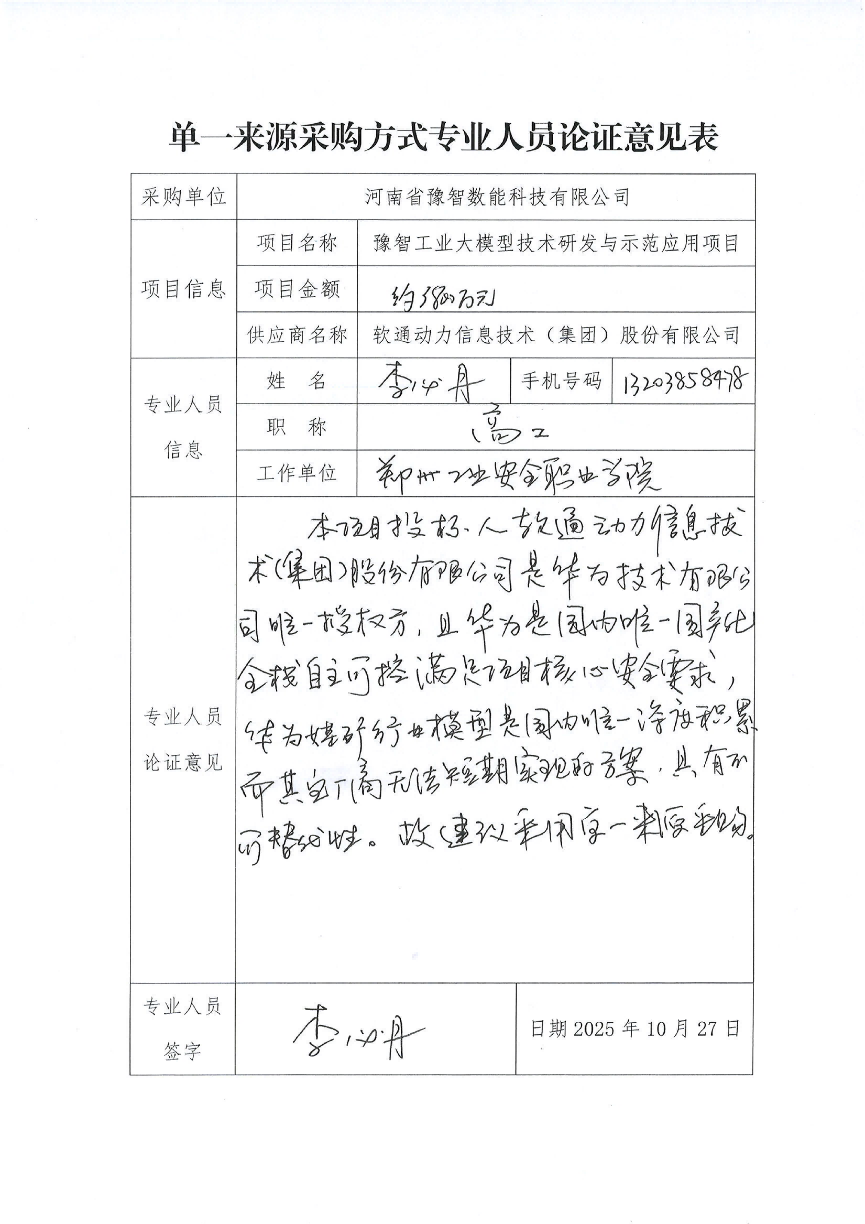 单一来源采购方式专业人员论证意见表
采购单位 河南省豫智数能科技有限公司
项目信息
项目名称 豫智工业大模型技术研发与示范应用项目
项目金额 约380万元
供应商名称 软通动力信息技术（集团）股份有限公司
专业人员
信息
姓 名 李必丹 手机号码 13203858478
职 称 高工
工作单位 郑州工业安全职业学院
专业人员
论证意见
本项目投标人软通动力信息技
术(集团)股份有限公司是华为技术有限公
司唯一授权方，且华为是国内唯一国产化
全栈自主可控满足项目核心安全要求，
华为煤矿行业模型是国内唯一深度积累
而其它厂商无法短期实现的方案，具有不
可替代性。故建议采用单一来源采购。
专业人员
签字
李必丹
日期 2025 年 10 月 27 日